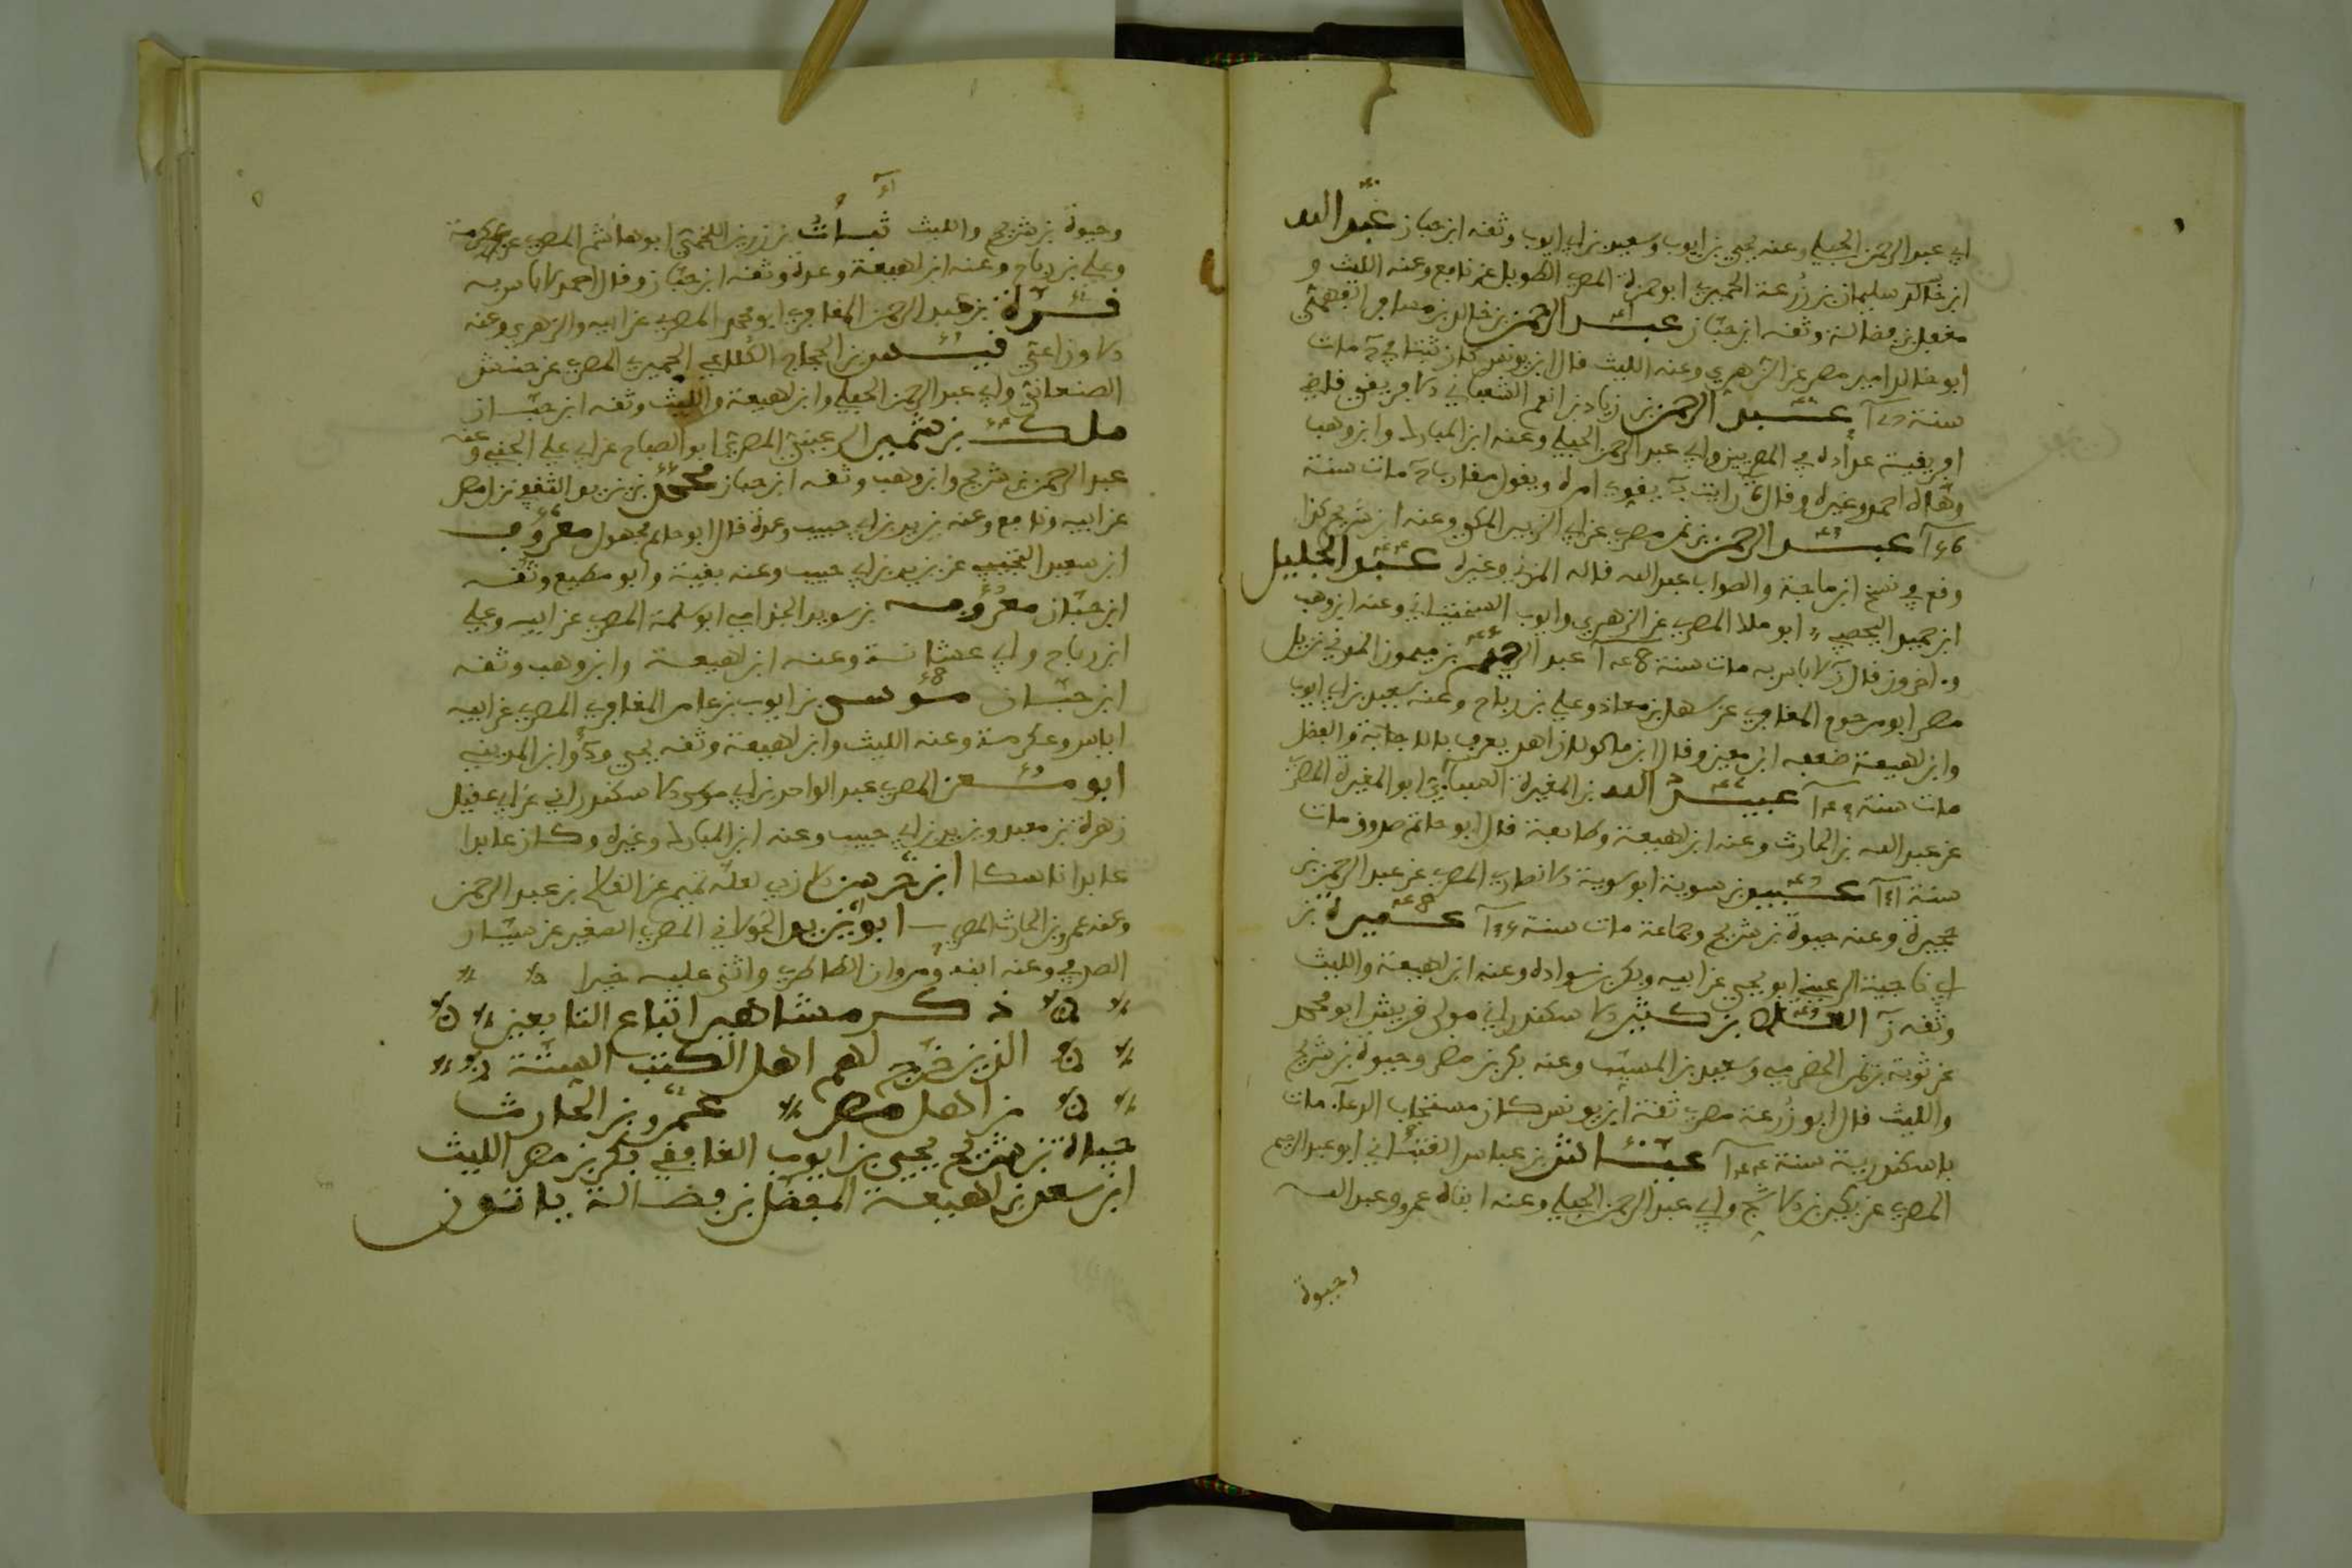 ابي عبد الرحمن الحبلي وعنه يحيى بن ايوب وسعيد بن ابي ايوب وثقه ابن حبان عبد الله
ابن خالد سليمان بن زرعة الحميري ابو حمزة المصري الطويل عن نافع وعنه الليث و
مفضل بن فضالة وثقه ابن حبان عبد الرحمن بن خالد بن مسافر الفهمي
ابو خالد امير مصر عن الزهري وعنه الليث قال ابن يونس كان ثبتا في مات
سنة عبد الرحمن بن زياد بن انعم الشعباني الافريقي قاضي
افريقية عداده في المصريين وابي عبد الرحمن الحبلي وعنه ابن المبارك وابن وهب
وهاه احمد وغيره وقال رايت يقوي امره ويقول مقارب مات سنة
عبد الرحمن بن نمر مصري عن ابي الزبير المكي وعنه ابن شريح كذا
وقع في نسخ ابن ماجة والصواب عبد الله قاله المزي وغيره عبد الجليل
ابن حميد اليحصبي ابو ملك المصري عن الزهري وايوب السختياني وعنه ابن وهب
واخرون قال لا باس به مات سنة عبد الرحيم بن ميمون المدني نزيل
مصر ابو مرحوم المعافري عن سهل بن معاذ وعلي بن رباح وعنه سعيد بن ابي ايوب
وابن لهيعة ضعفه ابن معين وقال ابن ماكولا زاهد يعرف بالاجابة والفضل
مات سنة عبيد الله بن المغيرة السبائي ابو المغيرة المصري
عن عبد الله بن الحارث وعنه ابن لهيعة وطايفة قال ابو حاتم صدوق مات
سنة عبيد بن سوية ابو سوية الانصاري المصري عن عبد الرحمن بن
حجيرة وعنه حيوة بن شريح وجماعة مات سنة عميرة بن
ابي ناجية الرعيني ابو يحيى عن ابيه وبكر بن سوادة وعنه ابن لهيعة والليث
وثقه العلاء بن كثير الاسكندراني مولى قريش ابو محمد
عن توبة بن نمر الحضرمي وسعيد بن المسيب وعنه بكر بن مضر وحيوة بن شريح
والليث قال ابو زرعة مصري ثقة ابن يونس كان مستجاب الدعاء مات
باسكندرية سنة عياش بن عباس القتباني ابو عبد الرحيم
المصري عن بكير بن الاشج وابي عبد الرحمن الحبلي وعنه ابناه عمرو وعبد الله
وحيوة
وحيوة بن شريح والليث قباث بن رزين اللخمي ابو هاشم المصري عن عكرمة
وعلي بن رباح وعنه ابن لهيعة وعدة وثقه ابن حبان وقال احمد لا باس به
قرة بن عبد الرحمن المعافري ابو محمد المصري عن ابيه والزهري وعنه
الاوزاعي قيس بن الحجاج الكلاعي الحميري المصري عن حنش
الصنعاني وابي عبد الرحمن الحبلي وابن لهيعة والليث وثقه ابن حبان
ملك بن شمير الرعيني المصري ابو الصباح عن ابي علي الجنبي وعنه
عبد الرحمن بن شريح وابن وهب وثقه ابن حبان محمد بن يزيد الثقفي نزل مصر
عن ابيه ونافع وعنه يزيد بن ابي حبيب وعدة قال ابو حاتم مجهول معروف
ابن سعيد التجيبي عن يزيد بن ابي حبيب وعنه بقية وابو مطيع وثقه
ابن حبان معروف بن سويد الجذامي ابو سلمة المصري عن ابيه وعلي
ابن رباح وابي عشانة وعنه ابن لهيعة وابن وهب وثقه
ابن حبان موسى بن ايوب بن عامر الغافقي المصري عن ابيه
اياس وعكرمة وعنه الليث وابن لهيعة وثقه يحيى وابن المديني
ابو معن المصري عبد الواحد بن ابي موسى الاسكندراني عن ابي عقيل
زهرة بن معبد ويزيد بن ابي حبيب وعنه ابن المبارك وغيره وكان عابدا
عابدا ناسكا ابن حرمس الازدي لعله تميم عن القاسم بن عبد الرحمن
وعنه عمرو بن الحارث المصري ابو يزيد الخولاني المصري الصغير عن سيار
الصدفي وعنه ابنه ومروان الطاطري واثنى عليه خيرا
ذكر مشاهير اتباع التابعين
الذين خرج لهم اهل الكتب الستة
من اهل مصر عمرو بن الحارث
حياة بن شريح يحيى بن ايوب الغافقي بكر بن مضر الليث
ابن سعد بن لهيعة المفضل بن فضالة ياتون